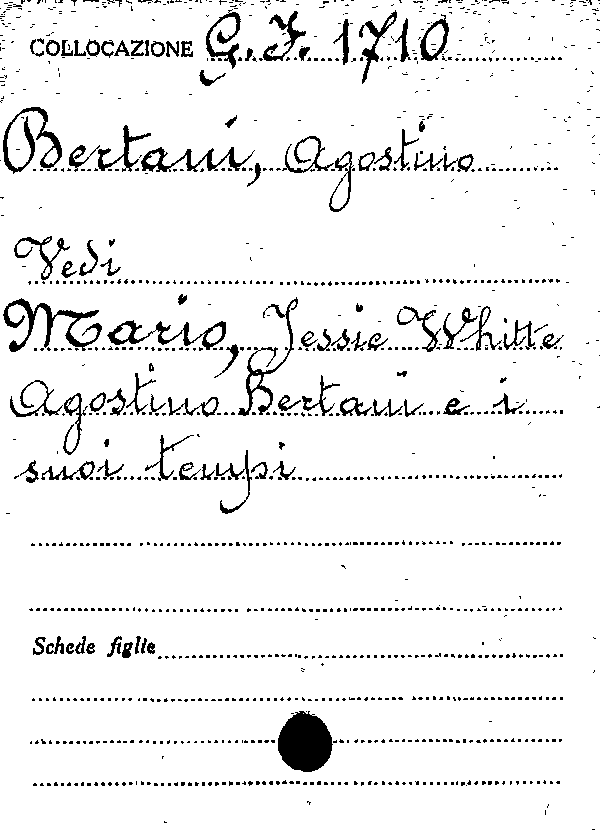 COLLOCAZIONE G. F. 1710
Bertani, Agostino
Vedi
Mario, Jessie Whitte
Agostino Bertani e i
suoi tempi
Schede figlie